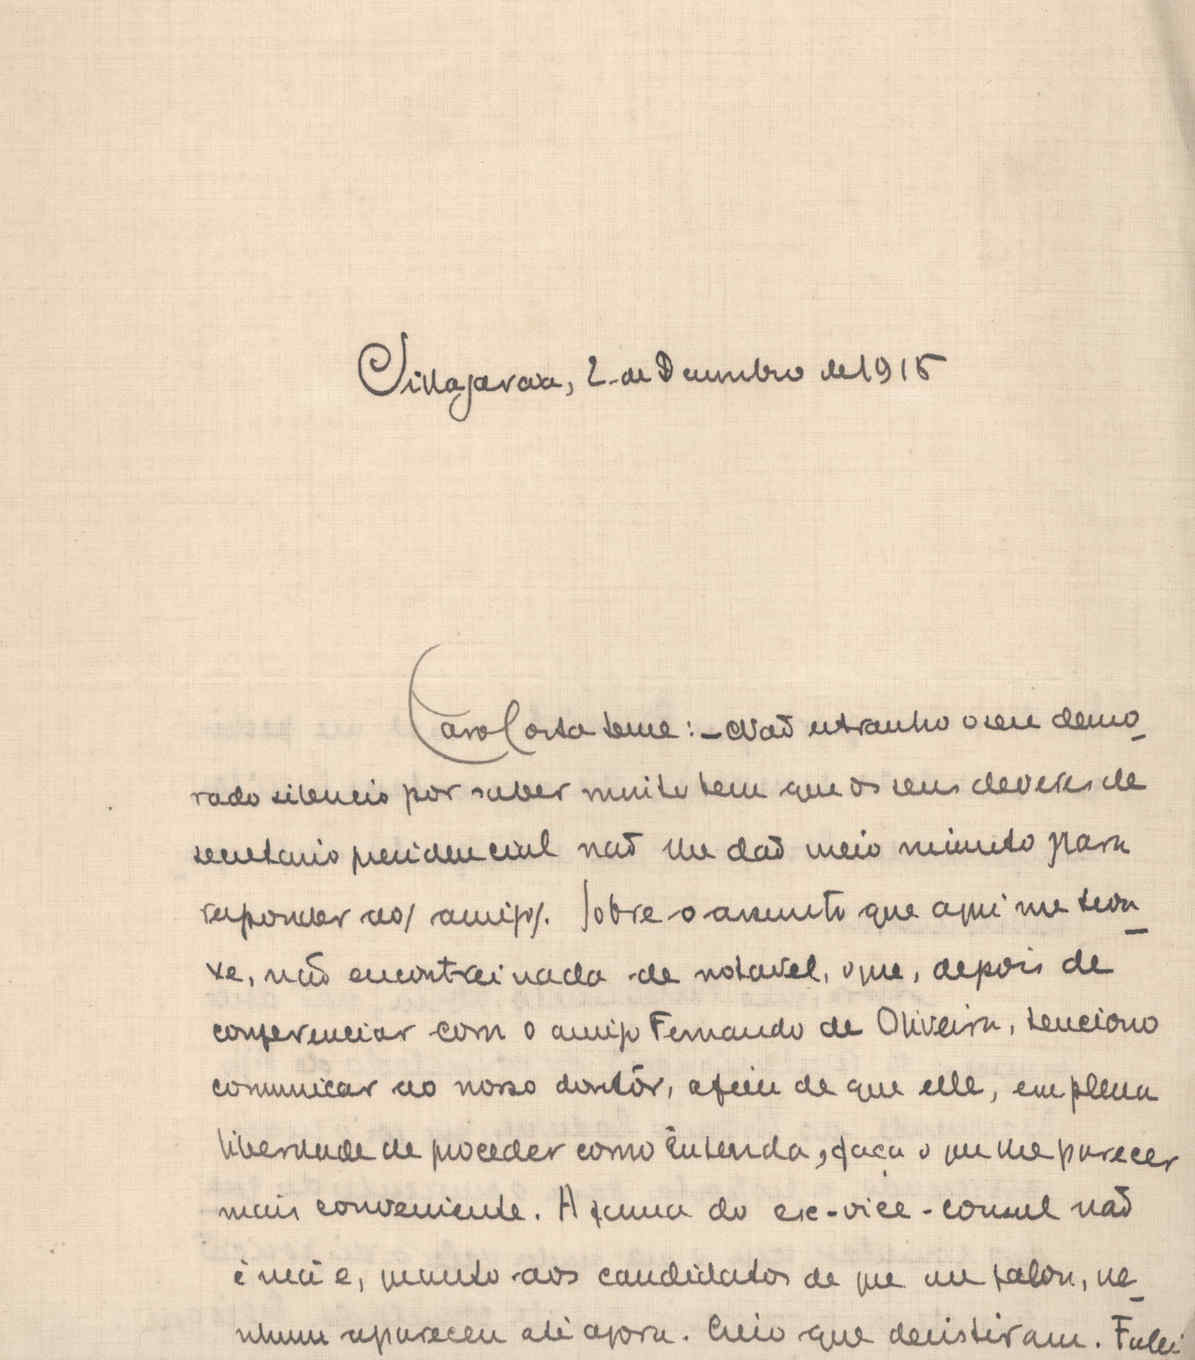 Villagarcia, 2 de Dezembro de 1915
Caro Costa Leme: - Não estranho o seu demo-
rado silencio por saber muito bem que os seus deveres de
secretario presidencial não lhe dão meio minuto para
responder aos amigos. Sobre o assunto que aqui me trou-
xe, não encontrei nada de notavel, que, depois de
conferenciar com o amigo Fernando de Oliveira, tenciono
comunicar ao nosso doutôr, afim de que elle, em plena
liberdade de proceder como entenda, faça o que lhe parecer
mais conveniente. A fama do ex-vice-consul não
é má e, quanto aos candidatos de que me falou, ne-
nhum apareceu até agora. Creio que desistiram. Falei